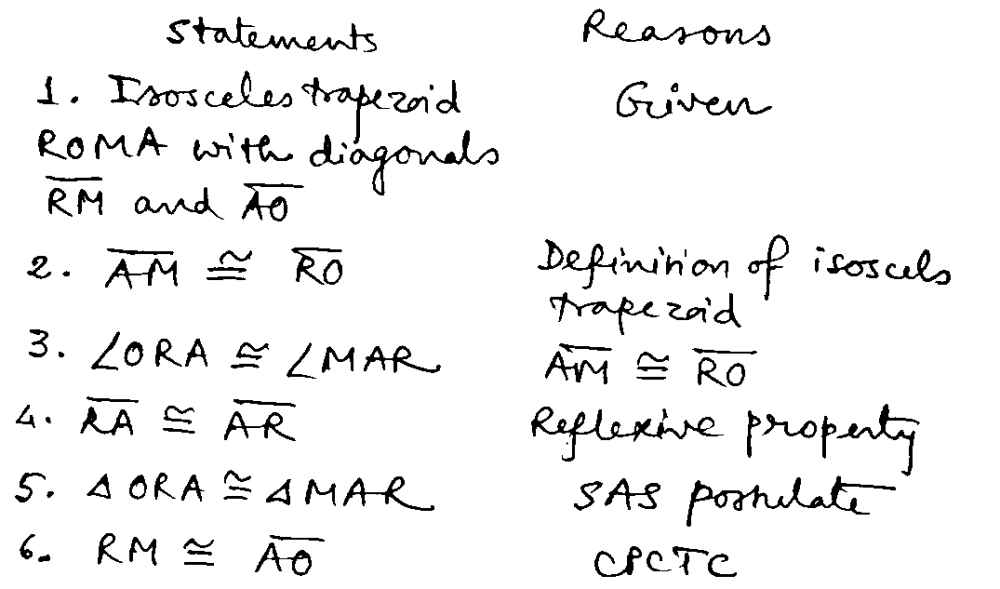 Statements Reasons
1. Isosceles trapezoid Given
ROMA with diagonals
R̅M̅ and A̅O̅
2. A̅M̅ ≅ R̅O̅ Definition of isoscels
trapezoid
3. ∠ORA ≅ ∠MAR A̅M̅ ≅ R̅O̅
4. R̅A̅ ≅ A̅R̅ Reflexive property
5. △ORA ≅ △MAR SAS postulate
6. RM ≅ A̅O̅ CPCTC